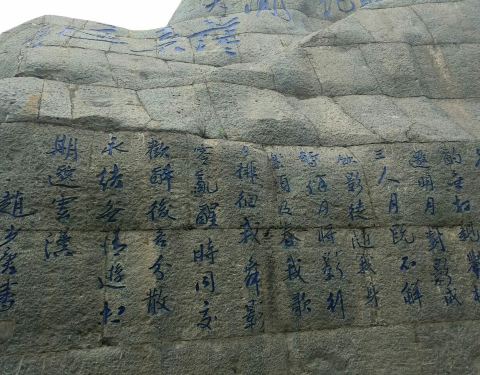 酌無相親舉杯
邀明月對影成
三人月既不解
飲影徒隨我身
暫伴月將影行
樂須及春我歌
月徘徊我舞影
零亂醒時同交
歡醉後各分散
永結無情遊相
期邈雲漢
趙少書